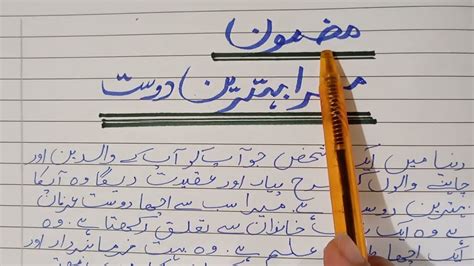 مضمون
میرا بہترین دوست
دنیا میں ایک شخص جو آپ کو آپ کے والدین اور
چاہنے والوں کی طرح پیار اور عقیدت دیگا وہ آپکا
بہترین دوست ہے۔ میرا سب سے اچھا دوست عزنان
ہے وہ ایک خاندان سے تعلق رکھتا ہے۔ وہ
ایک اچھا علم ہے۔ وہ بہت فرمانبردار اور